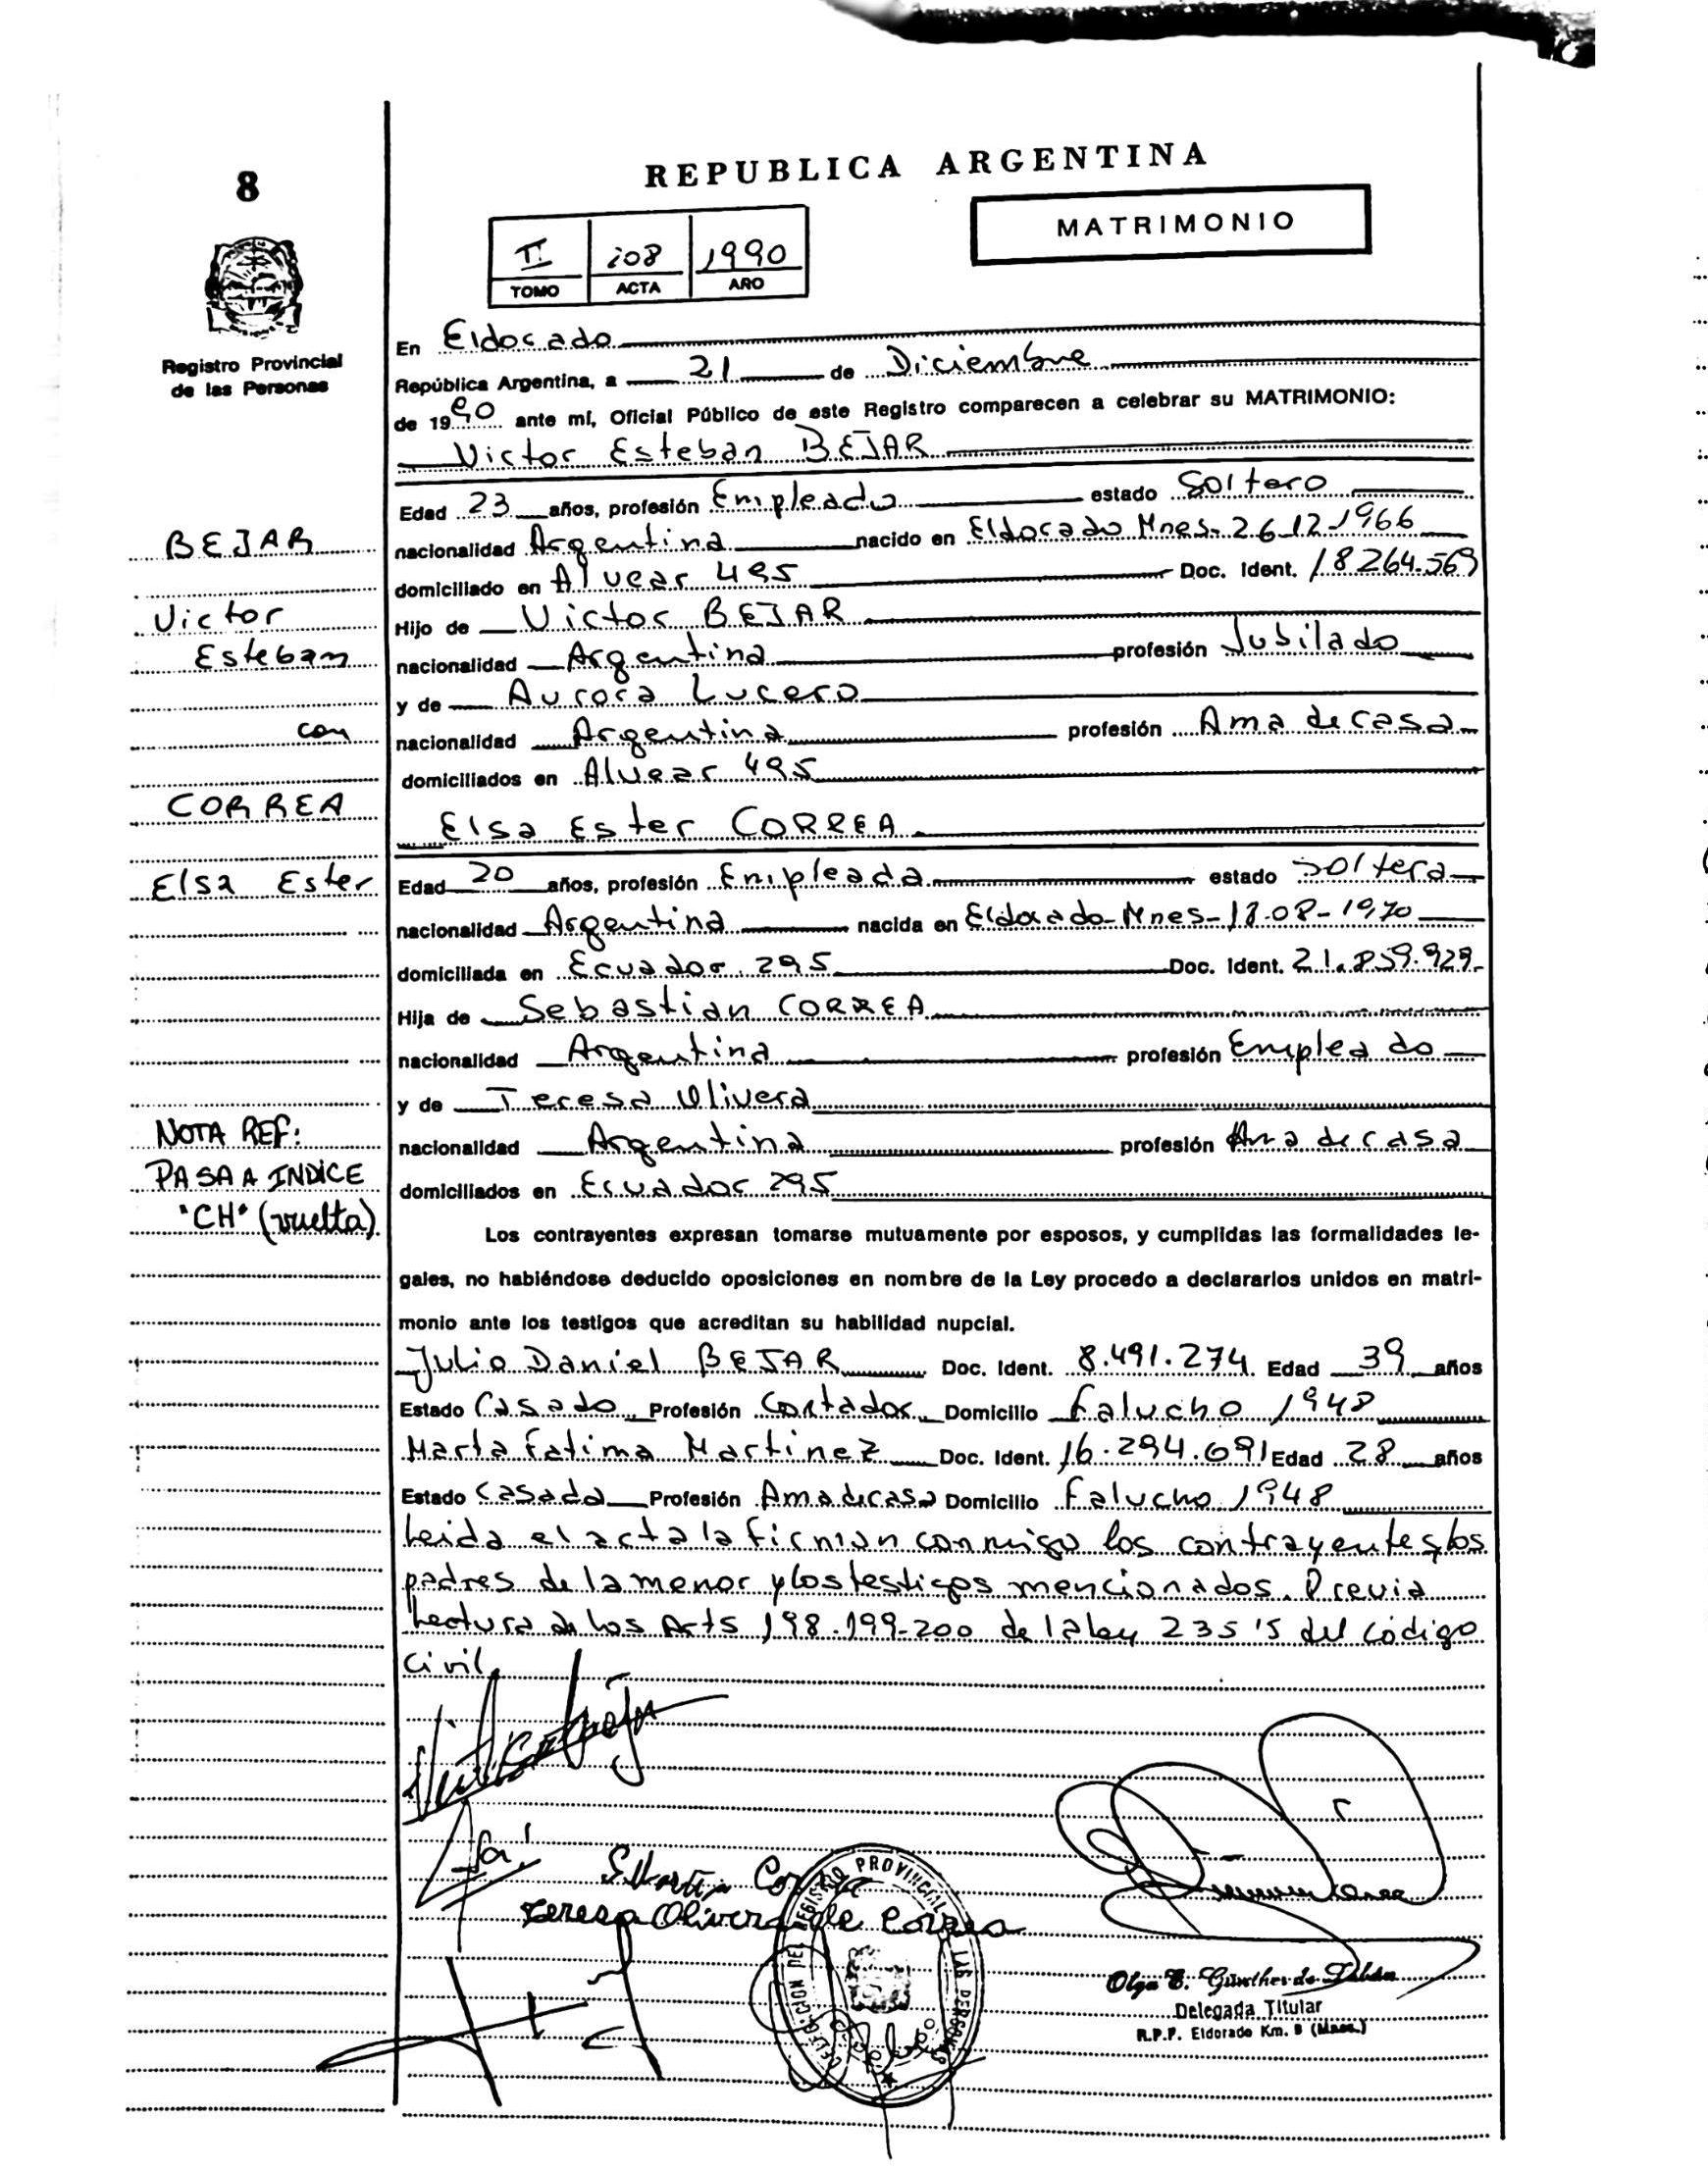 REPUBLICA ARGENTINA
8
MATRIMONIO
II 108 1990
TOMO ACTA AÑO
Registro Provincial
de las Personas
En Eldorado
República Argentina, a 21 de Diciembre
de 1990 ante mí, Oficial Público de este Registro comparecen a celebrar su MATRIMONIO:
Victor Esteban BEJAR
Edad 23 años, profesión Empleado estado Soltero
nacionalidad Argentina nacido en Eldorado Mnes-26.12.1966
domiciliado en Alvear 495 Doc. Ident. 18264.569
Hijo de Victor BEJAR
nacionalidad Argentina profesión Jubilado
y de Aurora Lucero
nacionalidad Argentina profesión Ama de casa
domiciliados en Alvear 495
Elsa Ester CORREA
Edad 20 años, profesión Empleada estado soltera
nacionalidad Argentina nacida en Eldorado-Mnes-18-08-1970
domiciliada en Ecuador 295 Doc. Ident. 21.859.929
Hija de Sebastian CORREA
nacionalidad Argentina profesión Empleado
y de Teresa Olivera
nacionalidad Argentina profesión Ama de casa
domiciliados en Ecuador 295
Los contrayentes expresan tomarse mutuamente por esposos, y cumplidas las formalidades le-
gales, no habiéndose deducido oposiciones en nombre de la Ley procedo a declararlos unidos en matri-
monio ante los testigos que acreditan su habilidad nupcial.
Julio Daniel BEJAR Doc. Ident. 8.491.274 Edad 39 años
Estado Casado Profesión Contador Domicilio Falucho 1948
Marta Fatima Martinez Doc. Ident. 16.294.691 Edad 28 años
Estado Casada Profesión Ama de casa Domicilio Falucho 1948
Leida el acta la firman conmigo los contrayentes, los
padres de la menor y los testigos mencionados. Previa
Lectura de los Arts 198.199-200 de la ley 23515 del código
Civil
BEJAR
Victor
Esteban
con
CORREA
Elsa Ester
NOTA REF:
PASA A INDICE
"CH" (vuelta)
Teresa Olivera de Correa
DELEGACION DEL REGISTRO PROVINCIAL LAS PERSONAS
Olga E. Günther de
Delegada Titular
R.P.P. Eldorado Km. 8 (Mnes.)